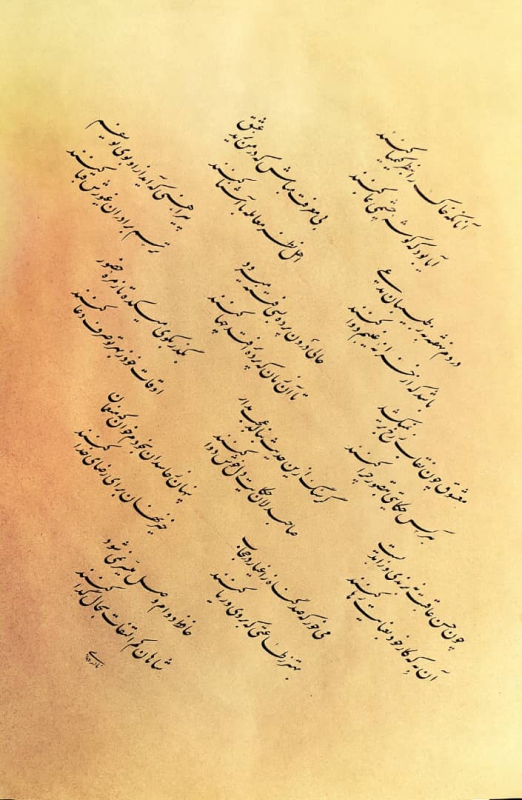 آنان که خاک را به نظر کیمیا کنند
آیا بود که گوشه چشمی به ما کنند
دردم نهفته به ز طبیبان مدعی
باشد که از خزانه غیبم دوا کنند
معشوق چون نقاب ز رخ بر نمی‌کشد
هر کس حکایتی به تصور چرا کنند
چون حسن عاقبت نه به رندی و زاهدیست
آن به که کار خود به عنایت رها کنند
بی معرفت مباش که در من یزید عشق
اهل نظر معامله با آشنا کنند
حالی درون پرده بسی فتنه می‌رود
تا آن زمان که پرده برافتد چها کنند
گر سنگ از این حدیث بنالد عجب مدار
صاحبدلان حکایت دل خوش ادا کنند
می خور که صد گناه ز اغیار در حجاب
بهتر ز طاعتی که به روی و ریا کنند
پیراهنی که آید از او بوی یوسفم
ترسم برادران غیورش قبا کنند
بگذر به کوی میکده تا زمره حضور
اوقات خود ز بهر تو صرف دعا کنند
پنهان ز حاسدان به خودم خوان که منعمان
خیر نهان برای رضای خدا کنند
حافظ دوام وصل میسر نمی‌شود
شاهان کم التفات به حال گدا کنند